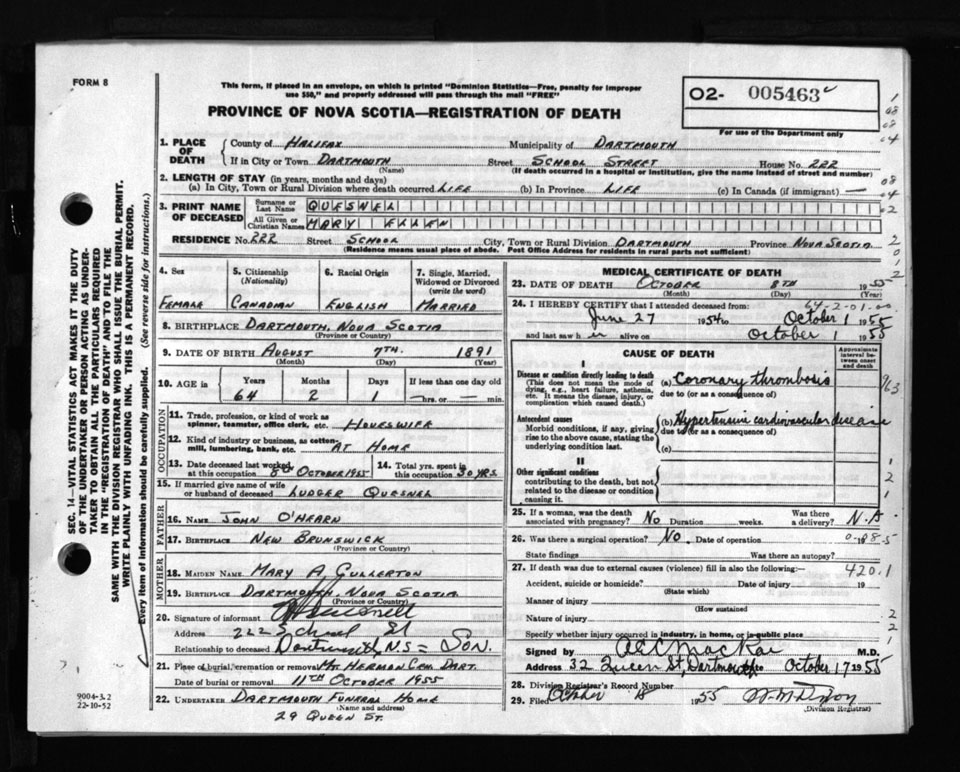 FORM 8
This form, if placed in an envelope, on which is printed "Dominion Statistics—Free, penalty for improper
use $50," and properly addressed will pass through the mail "FREE"
O2- 005463
For use of the Department only
PROVINCE OF NOVA SCOTIA—REGISTRATION OF DEATH
1. PLACE OF DEATH County of HALIFAX Municipality of DARTMOUTH
If in City or Town DARTMOUTH (Name) Street SCHOOL STREET House No. 222
(If death occurred in a hospital or institution, give the name instead of street and number)
2. LENGTH OF STAY (in years, months and days)
(a) In City, Town or Rural Division where death occurred LIFE (b) In Province LIFE (c) In Canada (if immigrant) —
3. PRINT NAME OF DECEASED Surname or Last Name QUESNEL
All Given or Christian Names MARY ELLEN
RESIDENCE No. 222 Street SCHOOL City, Town or Rural Division DARTMOUTH Province NOVA SCOTIA
(Residence means usual place of abode. Post Office Address for residents in rural parts not sufficient)
4. Sex 5. Citizenship (Nationality) 6. Racial Origin 7. Single, Married, Widowed or Divorced (write the word)
FEMALE CANADIAN ENGLISH MARRIED
8. BIRTHPLACE DARTMOUTH, NOVA SCOTIA
(Province or Country)
9. DATE OF BIRTH AUGUST 7TH. 1891
(Month) (Day) (Year)
10. AGE in Years Months Days If less than one day old
64 2 1 —hrs. or— min.
OCCUPATION
11. Trade, profession, or kind of work as
spinner, teamster, office clerk, etc. HOUESWIFE
12. Kind of industry or business, as cotton-
mill, lumbering, bank, etc. AT HOME
13. Date deceased last worked
at this occupation 8TH OCTOBER 1955
14. Total yrs. spent in
this occupation 30 YRS.
15. If married give name of wife
or husband of deceased LUDGER QUESNEL
FATHER
16. NAME JOHN O'HEARN
17. BIRTHPLACE NEW BRUNSWICK
(Province or Country)
MOTHER
18. MAIDEN NAME MARY A GULLERTON
19. BIRTHPLACE DARTMOUTH, NOVA SCOTIA
(Province or Country)
20. Signature of informant
Address 222 School St
Relationship to deceased Dartmouth, N.S = SON.
21. Place of burial, cremation or removal Mt HERMON CEM. DART.
Date of burial or removal 11TH OCTOBER 1955
22. UNDERTAKER DARTMOUTH FUNERAL HOME
(Name and address)
29 QUEEN ST.
MEDICAL CERTIFICATE OF DEATH
23. DATE OF DEATH OCTOBER 8TH 1955
(Month) (Day) (Year)
24. I HEREBY CERTIFY that I attended deceased from: 64-2-01-00
June 27 1954 to October 1 1955
and last saw her alive on October 1 1955
CAUSE OF DEATH
Approximate interval between onset and death
I
Disease or condition directly leading to death
(This does not mean the mode of
dying, e.g., heart failure, asthenia,
etc. It means the disease, injury, or
complication which caused death.)
(a) Coronary thrombosis
due to (or as a consequence of)
Antecedent causes
Morbid conditions, if any, giving
rise to the above cause, stating the
underlying condition last.
(b) Hypertensive cardiovascular disease
due to (or as a consequence of)
(c)
II
Other significant conditions
contributing to the death, but not
related to the disease or condition
causing it.
25. If a woman, was the death
associated with pregnancy? No Duration weeks. Was there a delivery? N.A.
26. Was there a surgical operation? No. Date of operation
State findings Was there an autopsy?
27. If death was due to external causes (violence) fill in also the following:— 420.1
Accident, suicide or homicide? Date of injury 19
(State which)
Manner of injury
(How sustained
Nature of injury
Specify whether injury occurred in industry, in home, or in public place
Signed by MacKay M.D.
Address 32 Queen St, Dartmouth October 17 1955
28. Division Registrar's Record Number
29. Filed October 1955
(Division Registrar)
SEC. 14—VITAL STATISTICS ACT MAKES IT THE DUTY
OF THE UNDERTAKER OR PERSON ACTING AS UNDER-
TAKER TO OBTAIN ALL THE PARTICULARS REQUIRED
IN THE "REGISTRATION OF DEATH" AND TO FILE THE
SAME WITH THE DIVISION REGISTRAR WHO SHALL ISSUE THE BURIAL PERMIT.
WRITE PLAINLY WITH UNFADING INK. THIS IS A PERMANENT RECORD.
Every item of information should be carefully supplied. (See reverse side for instructions.)
9004-3.2
22-10-52